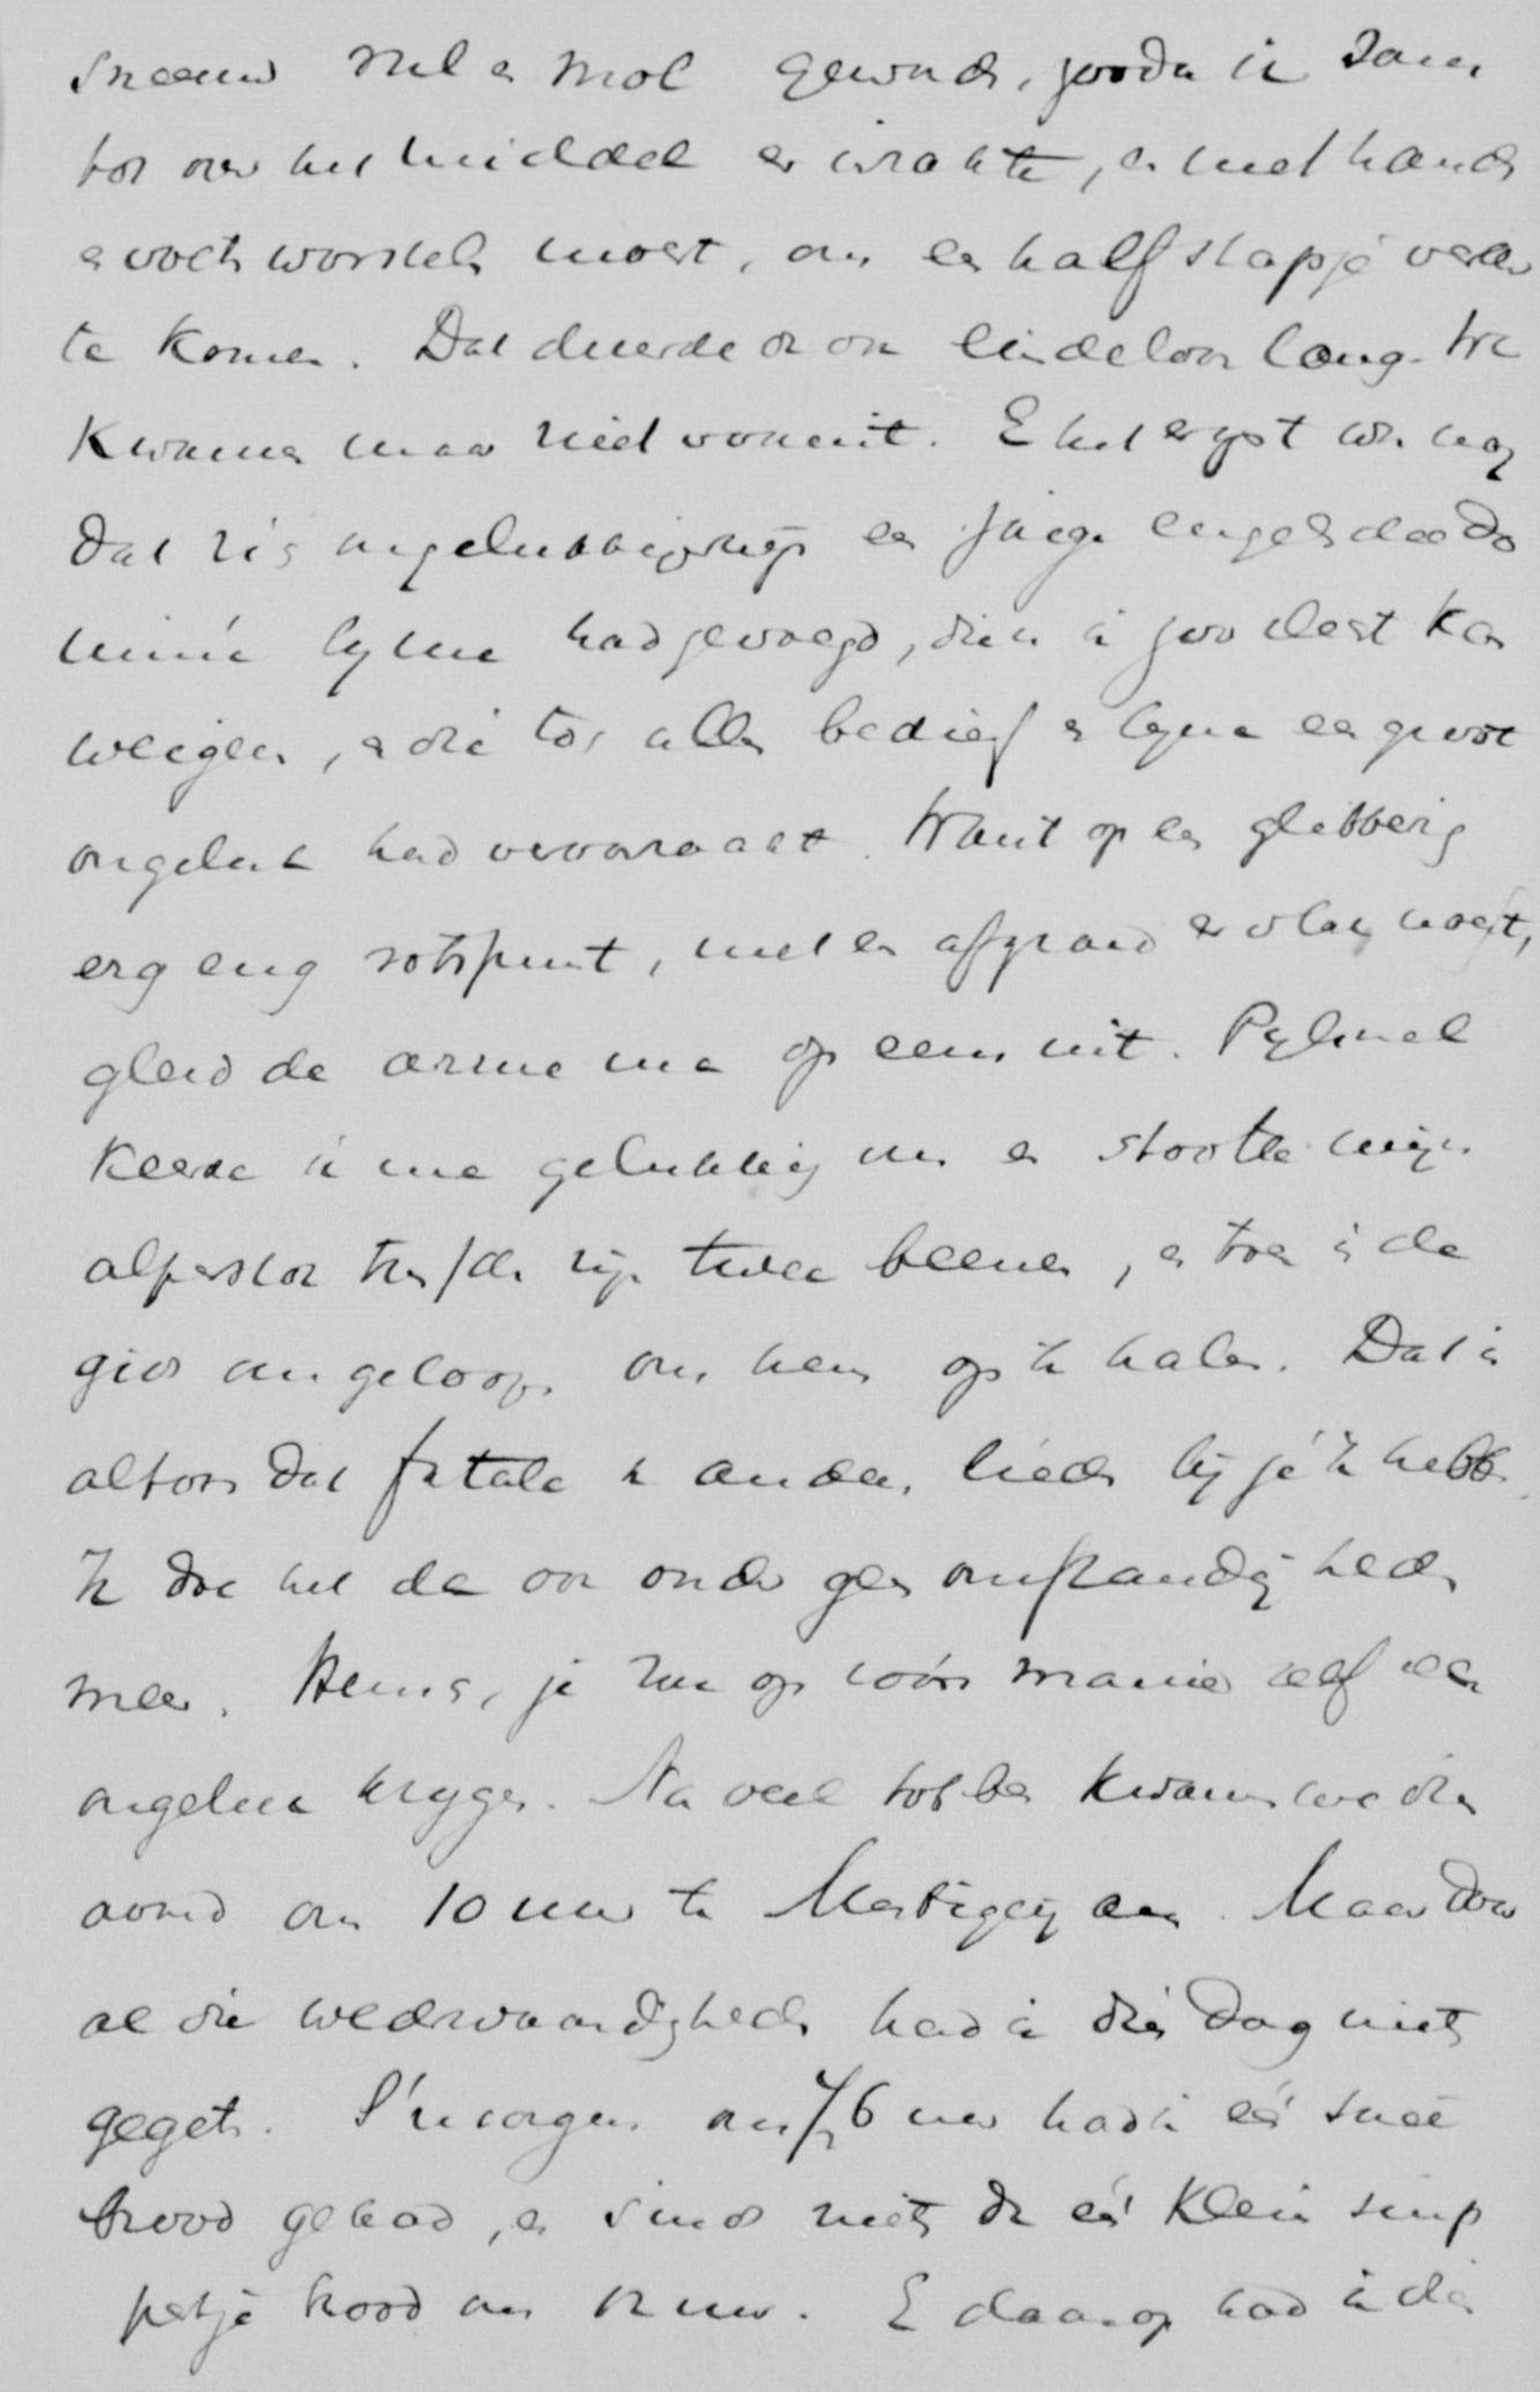 sneeuw viel en mol gewordn, zoodat ik soms
tot over het middel er inzakte, en met handen
en voeten worstelen moest, om een half stapje verder
te komen. Dat duurde dan ook eindeloos lang. We
kwamen maar niet vooruit. En het ergst was nog
dat zich ongelukkigerwijs een jonge engelsche Do
minee bij me had gevoegd, dien ik zoo slecht kon
weigeren, en die tot aller bedrijf en bijna een groot
ongeluk had veroorzaakt. Want op een glibberig
erg eng rotspunt, met een afgrond er vlak naast,
gleed de arme man op eens uit. Pijlsnel
keerde ik me gelukkig om en stootte mijn
alpenstok tusschen zijn twee beenen, en toen is de
gids aangeloopen om hem op te halen. Dat is
altoos dat fatale om andere lieden bij je te hebben.
Ik doe het dan ook onder geen omstandigheden
meer. Heusch, je zou op zoo'n manier zelf een
ongeluk krijgen. Na veel tobben kwamen we dien
avond om 10 uur te Martigny aan. Maar door
al die wederwaardigheden had ik dien dag niets
gegeten. S'morgens om ½6 uur had ik één snee
brood gehad, en sinds niets dan één klein snip
pertje brood om 12 uur. En daarop had ik dien